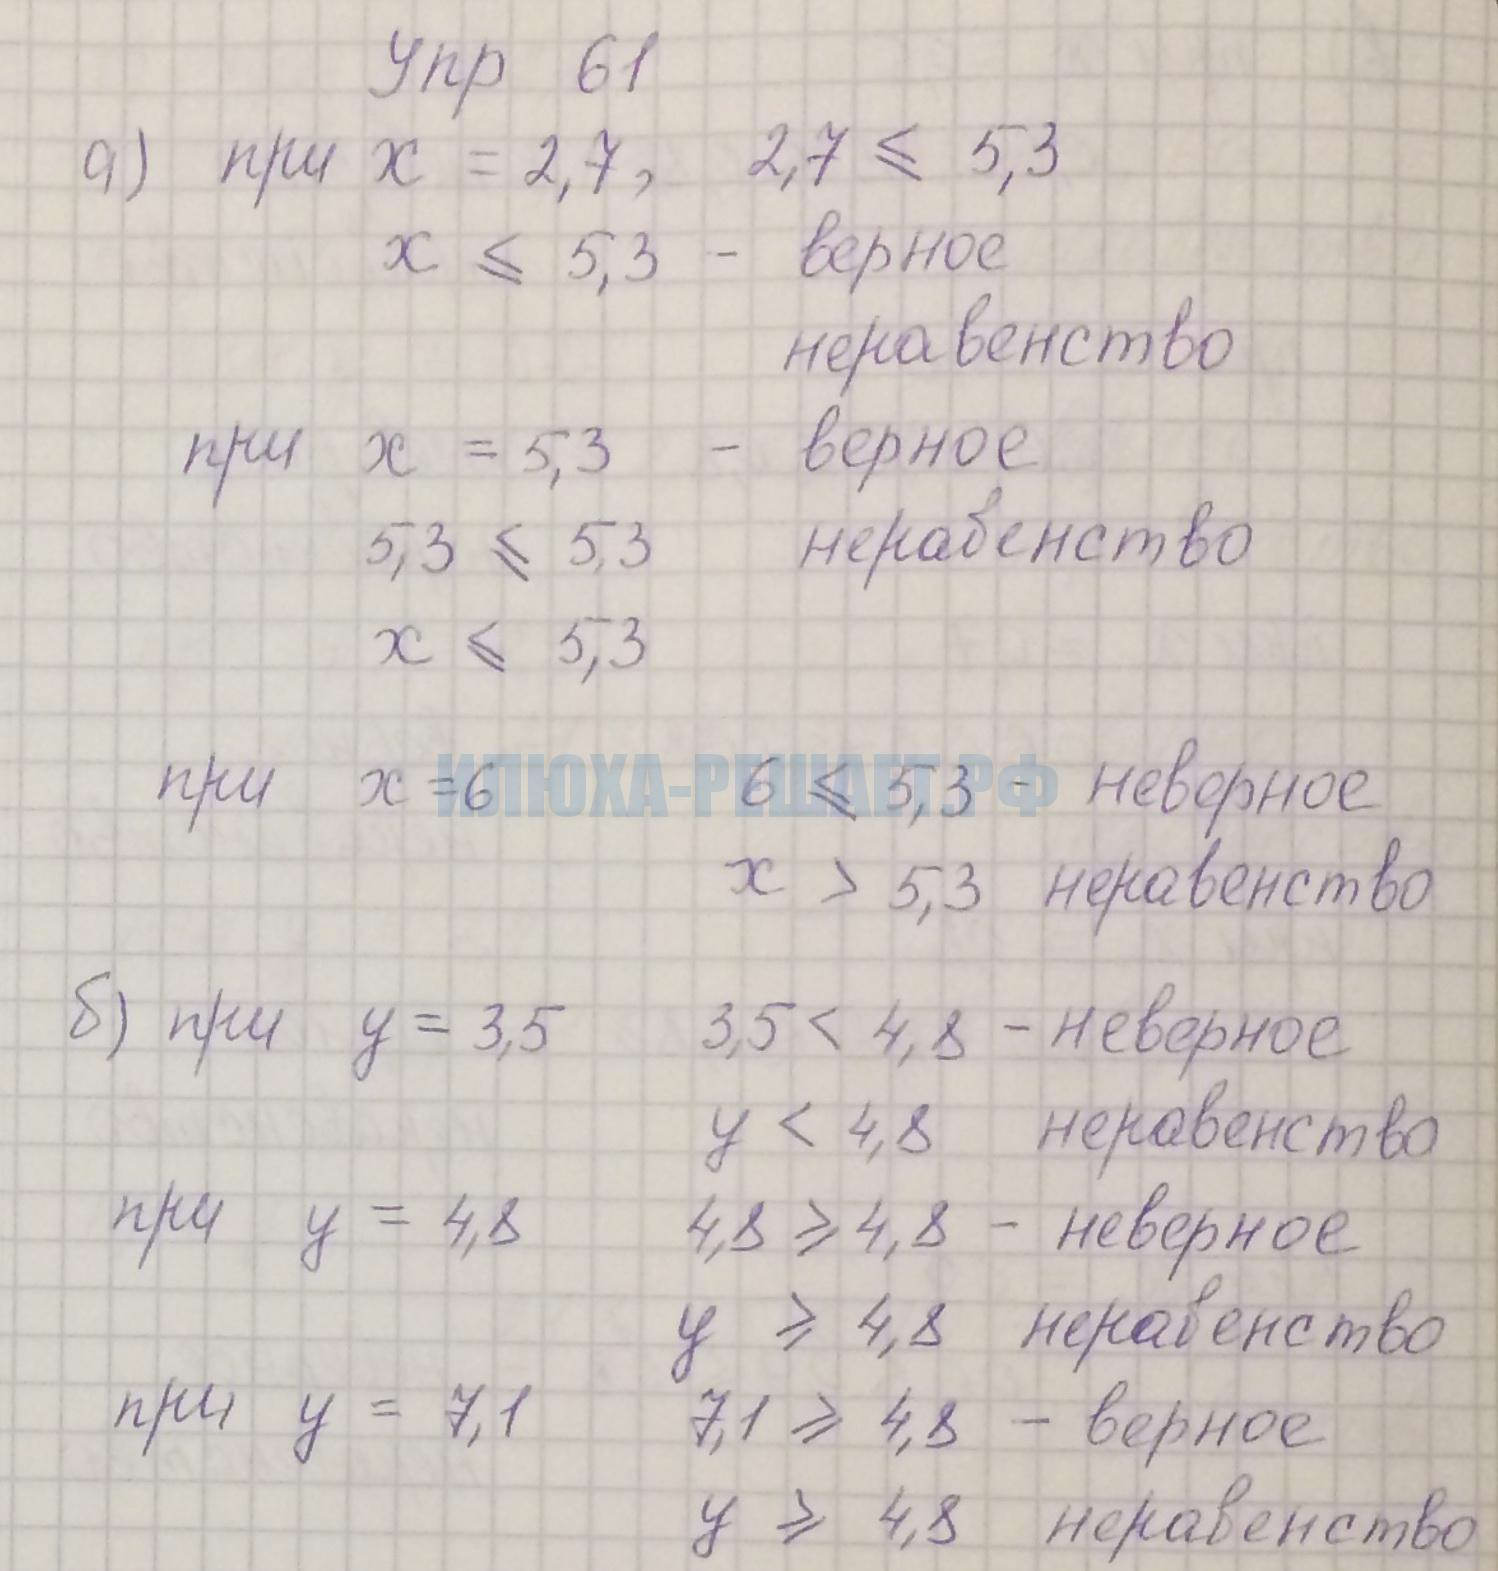 Упр 61
а) при x = 2,7, 2,7 ⩽ 5,3
x ⩽ 5,3 - верное
неравенство
при x = 5,3 - верное
5,3 ⩽ 5,3 неравенство
x ⩽ 5,3
при x = 6 6 ⩽ 5,3 - неверное
ИЛЮХА-РЕШАЕТ.РФ
x > 5,3 неравенство
б) при y = 3,5 3,5 < 4,8 - неверное
y < 4,8 неравенство
при y = 4,8 4,8 ⩾ 4,8 - неверное
y ⩾ 4,8 неравенство
при y = 7,1 7,1 ⩾ 4,8 - верное
y ⩾ 4,8 неравенство